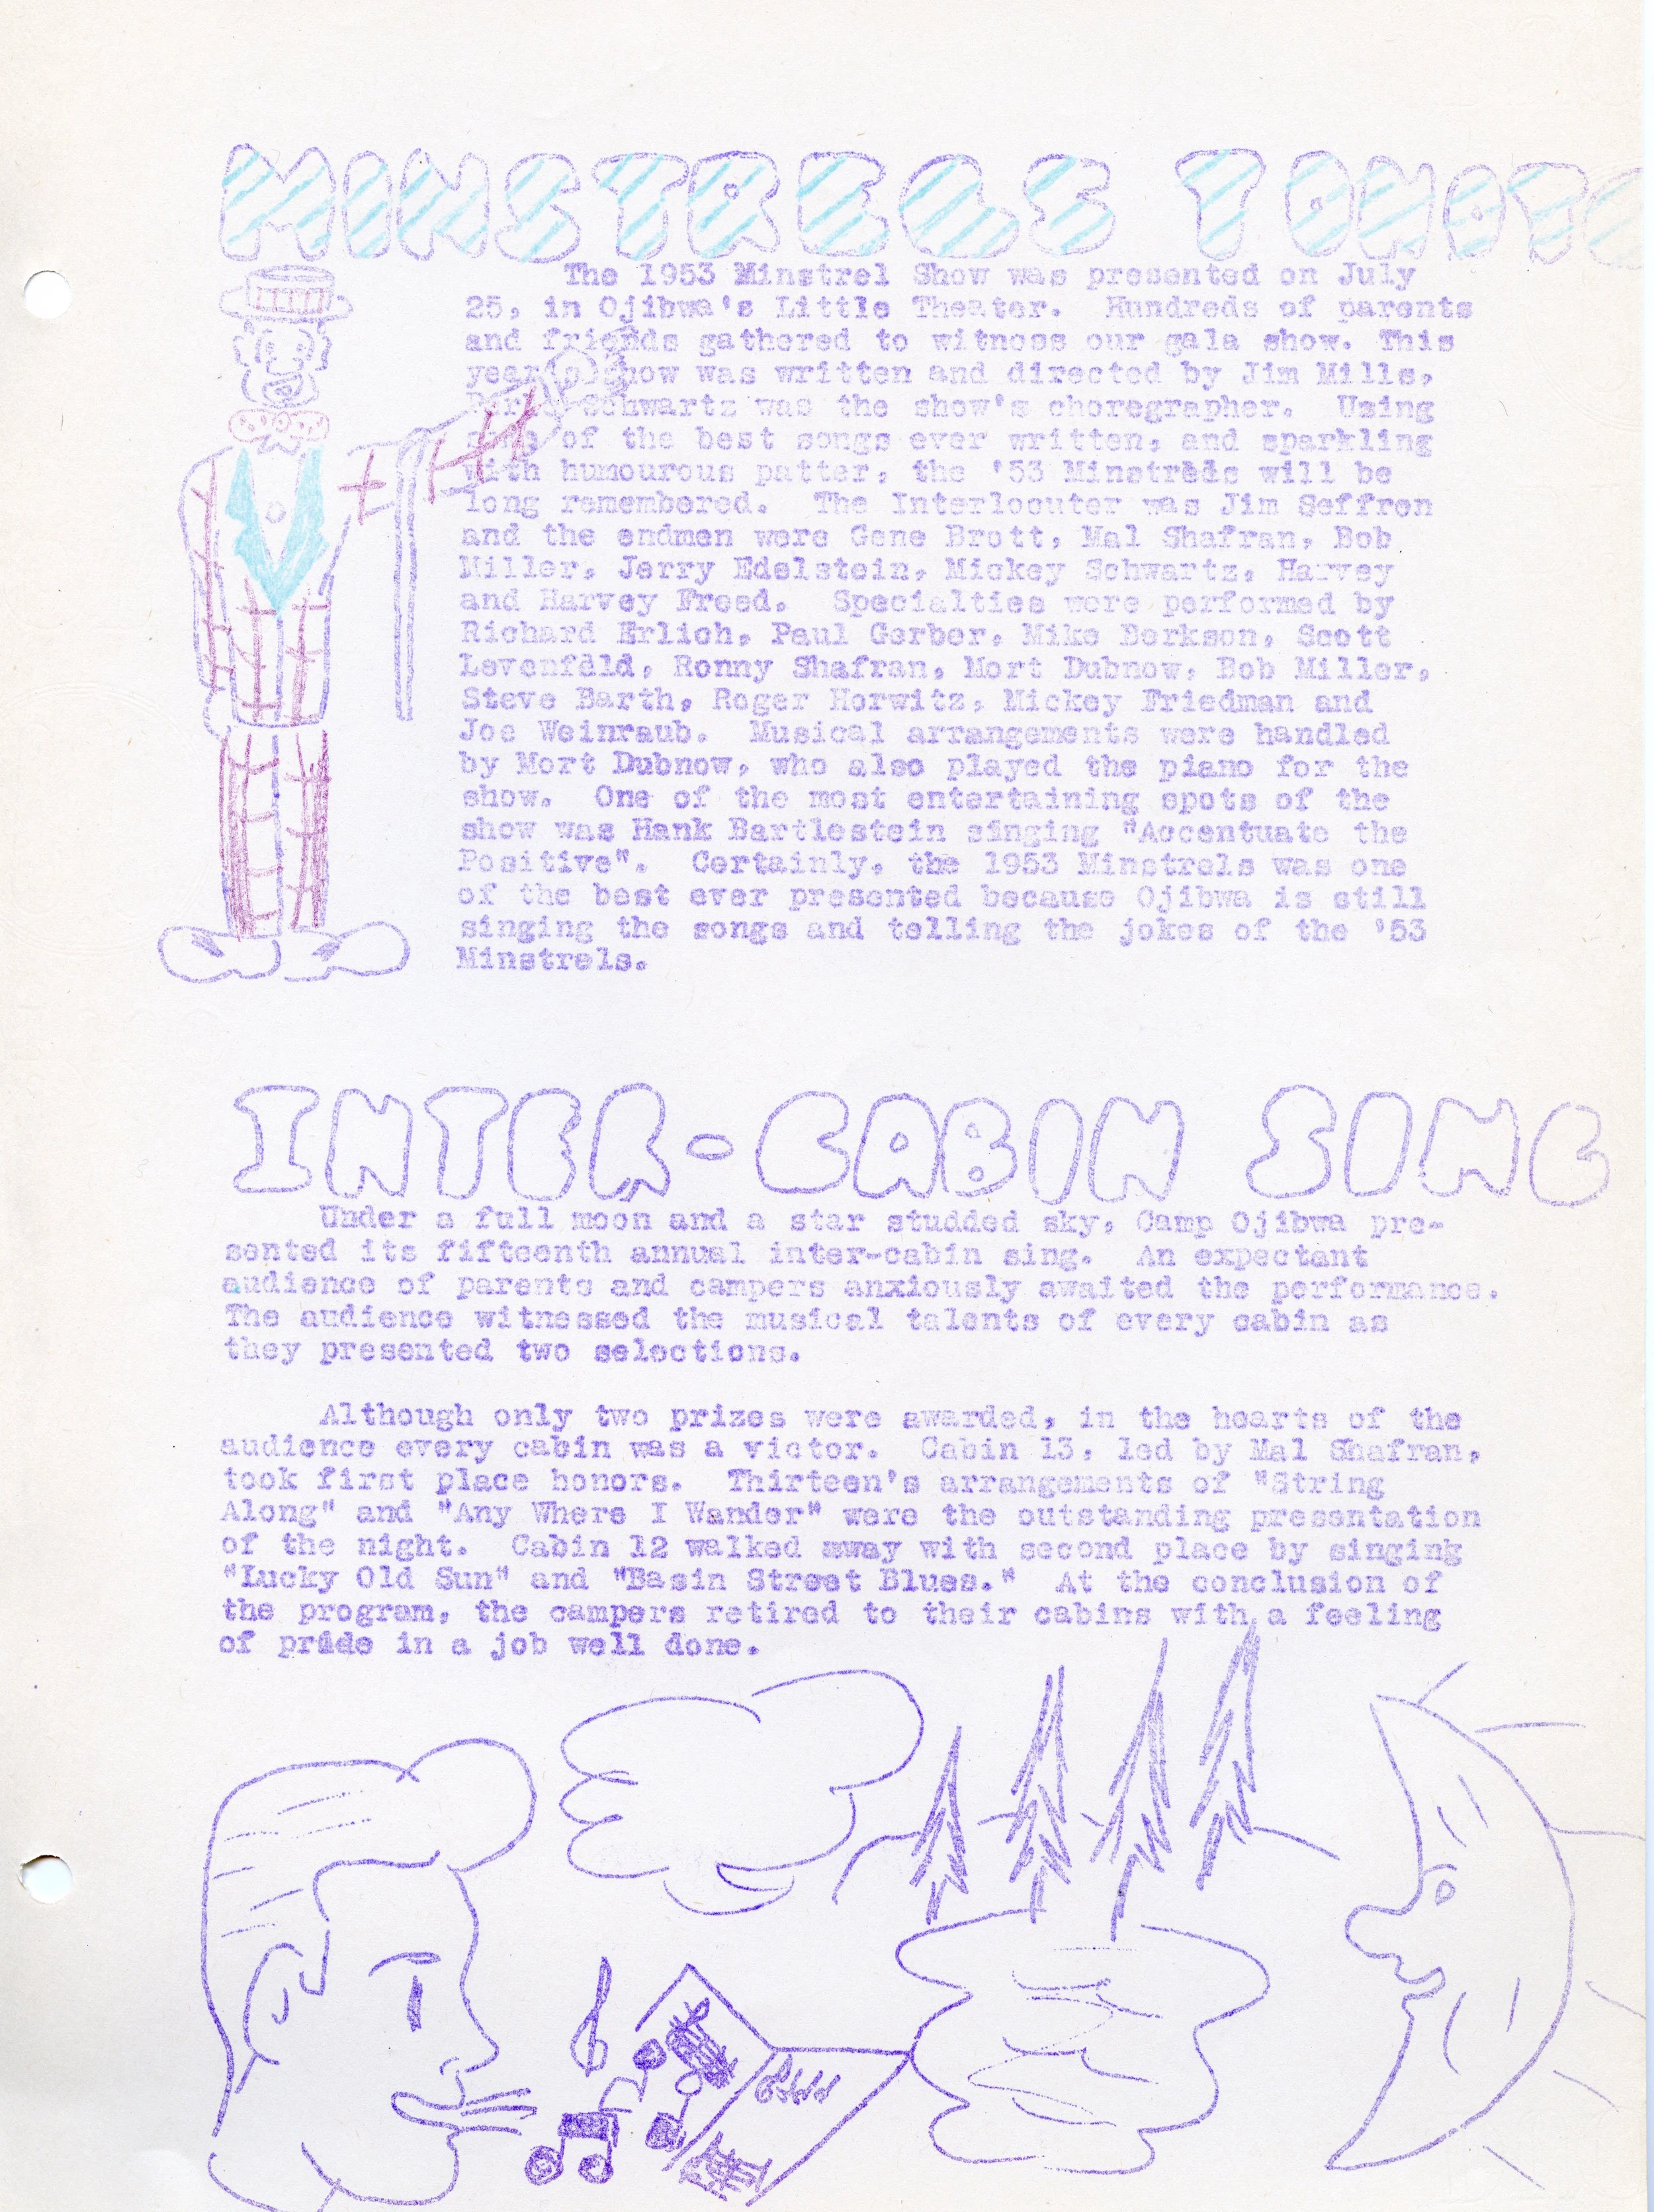 MINSTRELS TONITE
The 1953 Minstrel Show was presented on July
25, in Ojibwa's Little Theater. Hundreds of parents
and friends gathered to witness our gala show. This
year's show was written and directed by Jim Mills,
Schwartz was the show's choregrapher. Using
some of the best songs ever written, and sparkling
with humourous patter, the '53 Minstrels will be
long remembered. The Interlocuter was Jim Seffren
and the endmen were Gene Brott, Mal Shafran, Bob
Miller, Jerry Edelstein, Mickey Schwartz, Harvey
and Harvey Freed. Specialties were performed by
Richard Erlich, Paul Gerber, Mike Berkson, Scott
Levenfeld, Ronny Shafran, Mort Dubnow, Bob Miller,
Steve Barth, Roger Horwitz, Mickey Friedman and
Joe Weinraub. Musical arrangements were handled
by Mort Dubnow, who also played the piano for the
show. One of the most entertaining spots of the
show was Hank Bartlestein singing "Accentuate the
Positive". Certainly, the 1953 Minstrels was one
of the best ever presented because Ojibwa is still
singing the songs and telling the jokes of the '53
Minstrels.
INTER-CABIN SING
Under a full moon and a star studded sky, Camp Ojibwa pre-
sented its fifteenth annual inter-cabin sing. An expectant
audience of parents and campers anxiously awaited the performance.
The audience witnessed the musical talents of every cabin as
they presented two selections.
Although only two prizes were awarded, in the hearts of the
audience every cabin was a victor. Cabin 13, led by Mal Shafran,
took first place honors. Thirteen's arrangements of "String
Along" and "Any Where I Wander" were the outstanding presentation
of the night. Cabin 12 walked away with second place by singing
"Lucky Old Sun" and "Basin Street Blues." At the conclusion of
the program, the campers retired to their cabins with a feeling
of pride in a job well done.